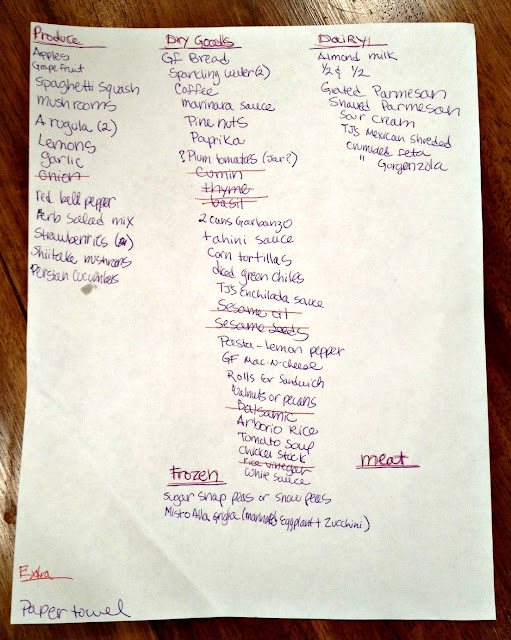 Produce
Apples
Grapefruit
Spaghetti Squash
mushrooms
Arugula (2)
Lemons
garlic
Onion
red bell pepper
Herb Salad mix
Strawberries
Shiitake mushrooms
Persian Cucumbers
Dry Goods
GF Bread
Sparkling water (2)
Coffee
marinara sauce
Pine nuts
Paprika
? Plum tomatoes (jar?)
Cumin
thyme
basil
2 cans Garbanzo
tahini sauce
Corn tortillas
diced green chiles
TJ's Enchilada sauce
Sesame oil
Sesame seeds
Pasta - lemon pepper
GF Mac-N-Cheese
Rolls for Sandwich
Walnuts or pecans
Balsamic
Arborio Rice
Tomato Soup
Chicken Stock
rice vinegar
White sauce
Dairy
Almond milk
1/2 & 1/2
Grated Parmesan
Shaved Parmesan
Sour Cream
TJ's Mexican shreded
Crumbled feta
" Gorgonzola
meat
Frozen
Sugar snap peas or snow peas
Misto Alla Grigla (marinated Eggplant + Zucchini)
Extra
Paper towel